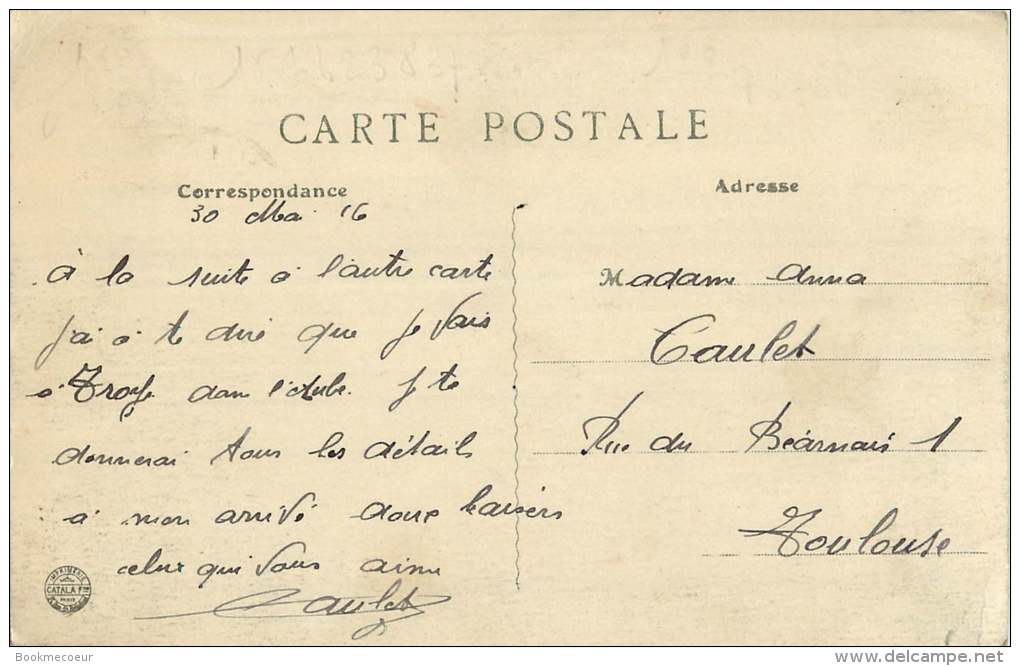 CARTE POSTALE
Correspondance
Adresse
30 Mai 16
à la suite à l'autre carte
j'ai à te dire que je vais
à Troye dans l'Aube. Je te
donnerai tous les détails
à mon arrivé donc baisers
celui qui vous aime
Caulet
Madame Anna
Caulet
Rue du Béarnais 1
Toulouse
IMPRIMERIE
CATALA Fres
PARIS
Bookmecoeur
delcampe.net